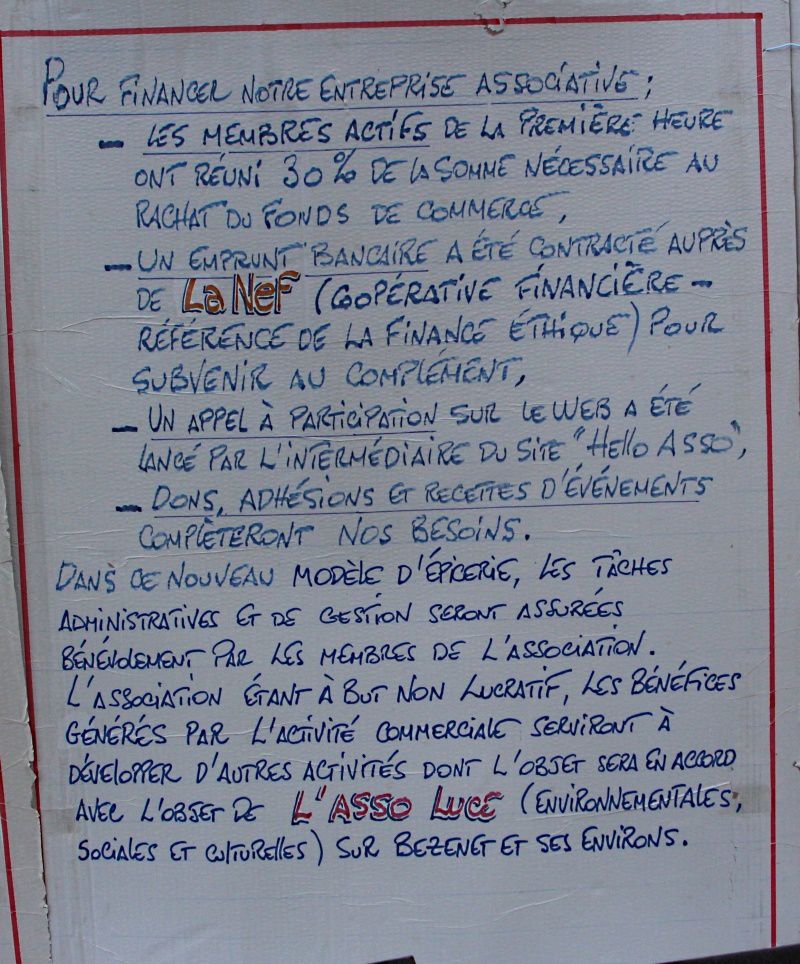 POUR FINANCER NOTRE ENTREPRISE ASSOCIATIVE ;
– LES MEMBRES ACTIFS DE LA PREMIÈRE HEURE
ONT RÉUNI 30 % DE LA SOMME NÉCESSAIRE AU
RACHAT DU FONDS DE COMMERCE,
– UN EMPRUNT BANCAIRE A ÉTÉ CONTRACTÉ AUPRÈS
DE La NeF (COOPÉRATIVE FINANCIÈRE –
RÉFÉRENCE DE LA FINANCE ÉTHIQUE) POUR
SUBVENIR AU COMPLÉMENT,
– UN APPEL À PARTICIPATION SUR LE WEB A ÉTÉ
LANCÉ PAR L'INTERMÉDIAIRE DU SITE "Hello ASSO",
– DONS, ADHÉSIONS ET RECETTES D'ÉVÉNEMENTS
COMPLÈTERONT NOS BESOINS.
DANS CE NOUVEAU MODÈLE D'ÉPICERIE, LES TÂCHES
ADMINISTRATIVES ET DE GESTION SERONT ASSURÉES
BÉNÉVOLEMENT PAR LES MEMBRES DE L'ASSOCIATION.
L'ASSOCIATION ÉTANT À BUT NON LUCRATIF, LES BÉNÉFICES
GÉNÉRÉS PAR L'ACTIVITÉ COMMERCIALE SERVIRONT À
DÉVELOPPER D'AUTRES ACTIVITÉS DONT L'OBJET SERA EN ACCORD
AVEC L'OBJET DE L'ASSO LUCE (ENVIRONNEMENTALES,
SOCIALES ET CULTURELLES) SUR BEZENET ET SES ENVIRONS.